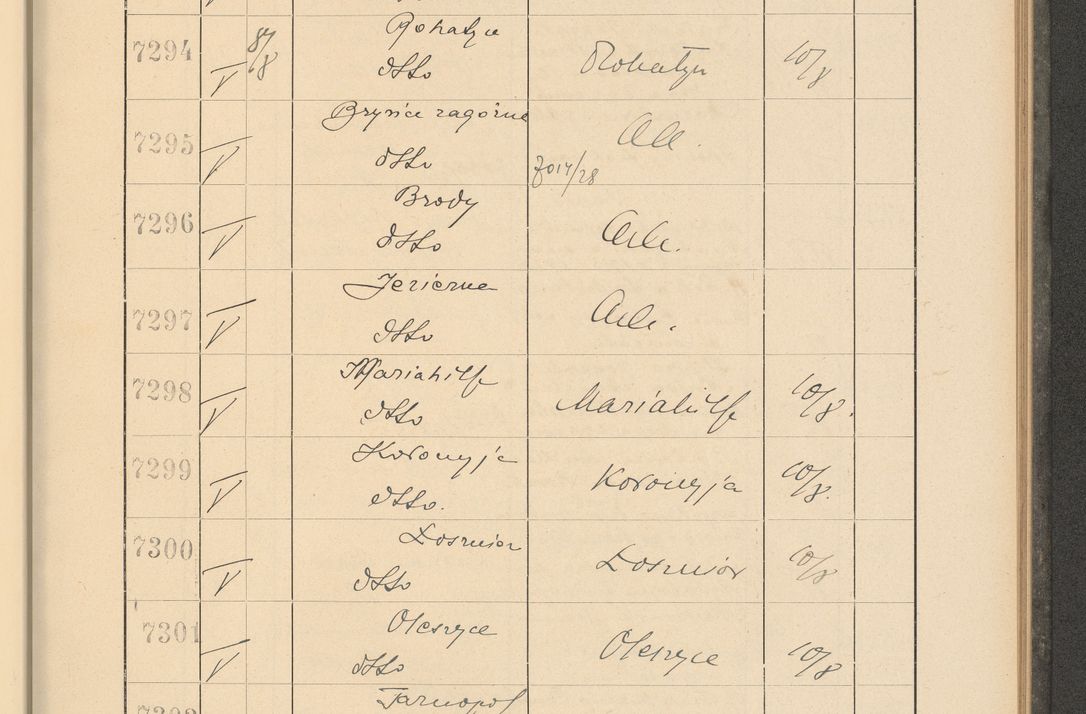 7294 V 8/8 Rohatyn
dtto Rohatyn 10/8
7295 V Brynice zagórne
dtto Ale.
7014/28
7296 V Brody
dtto Ale.
7297 V Jezierna
dtto Ale.
7298 V Mariahilf
dtto Mariahilf 10/8.
7299 V Koromyja
dtto. Koromyja 10/8.
7300 V Dosmior
dtto Dosmior 10/8
7301 V Oleszyce
dtto Oleszyce 10/8
Tarnopol